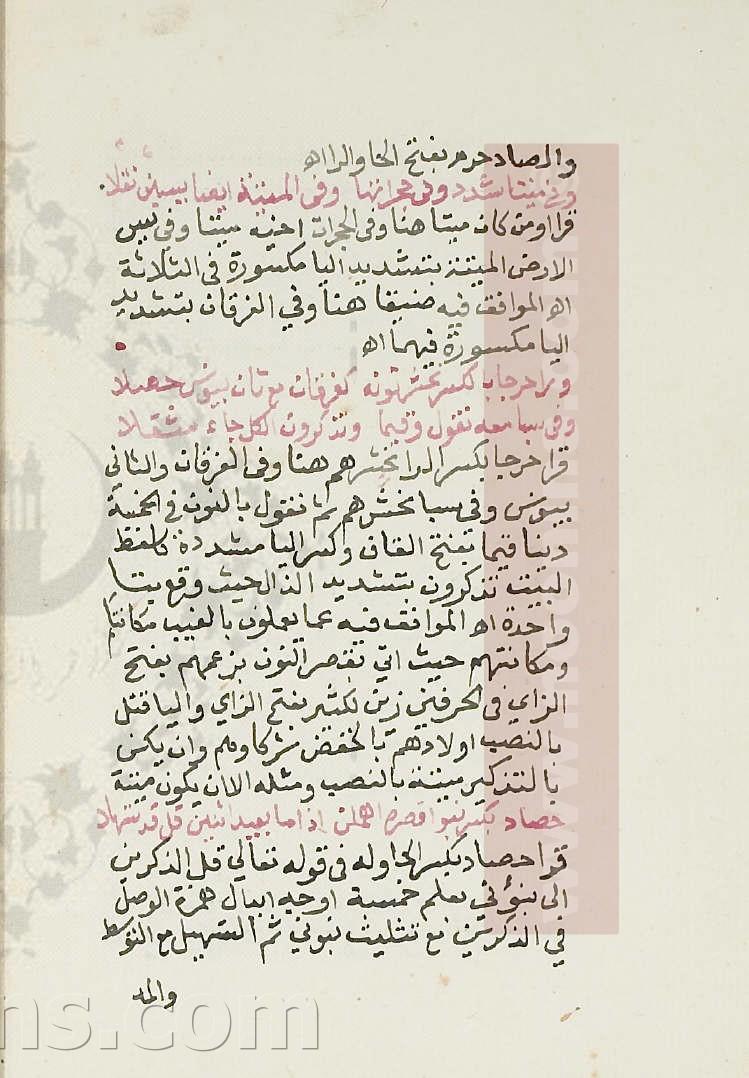 والصاد حرم بفتح الحا والرا اه
وفي ميتا شدد وفي حجراتها وفي الميتة ايضا بيسين نقلا
قرا اومن كان ميتا هنا وفي الحجرات اخيه ميتا وفي يس
الارض الميتة بتشديد اليا مكسورة في الثلاثة
اه الموافق فيه ضيقا هنا وفي الفرقان بتشديد
اليا مكسورة فيهما اه
ورا حرجا بالكسر نحشر نونه كفرقان مع ثان بيونس حصلا
وفي سبا معه نقول وقيما وتذكرون الكل جاء مثقلا
قرا حرجا بكسر الرا نحشرهم هنا وفي الفرقان والثاني
بيونس وفي سبا نحشرهم ثم نقول بالنون في الخمسة
دينا قيما بفتح القاف وكسر اليا مشددة كلفظ
البيت تذكرون بتشديد الذال حيث وقع بتا
واحدة اه الموافق فيه عما يعملون بالغيب مكانتكم
ومكانتهم حيث اتي بقصر النون بزعمهم بفتح
الزاي في الحرفين زين لكثير بفتح الزاي واليا قتل
بالنصب اولادهم بالخفض شركاوهم وان يكن
بالتذكير ميتة بالنصب ومثله الا ان يكون ميتة
حصاد بكسر اذا ما بعيد اثنين قل قد
قرا حصاد بكسر الحا وله في قوله تعالي قل الذكرين
الي نبؤني بعلم خمسة اوجه ابدال همزة الوصل
في الذكرين مع تثليث نبوني ثم التسهيل مع التوسط
والمد
www.
ns.com